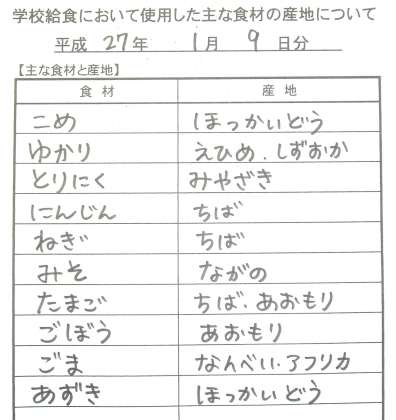 学校給食において使用した主な食材の産地について
平成 27年 1月 9日分
【主な食材と産地】
食材 産地
こめ ほっかいどう
ゆかり えひめ.しずおか
とりにく みやざき
にんじん ちば
ねぎ ちば
みそ ながの
たまご ちば.あおもり
ごぼう あおもり
ごま なんべい.アフリカ
あずき ほっかいどう